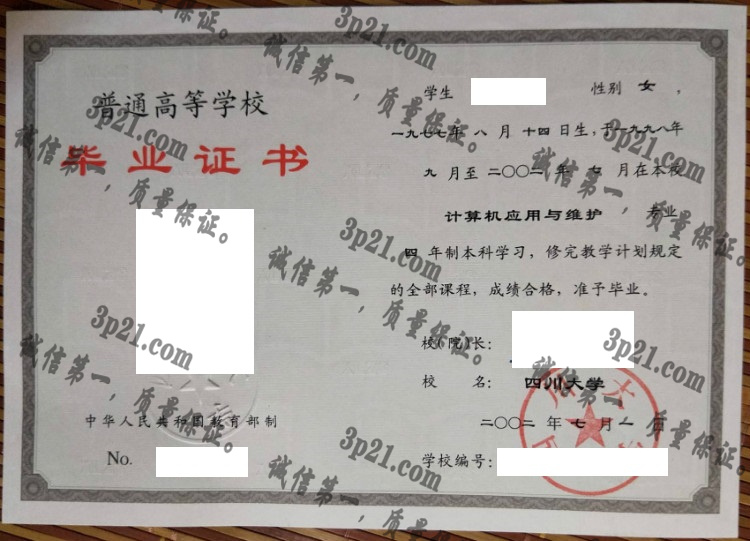 普通高等学校
毕业证书
中华人民共和国教育部制
No.
学生 性别 女 ，
一九七七年 八 月 十四 日生，于一九九八年
九 月至 二〇〇二 年 七 月在本校
计算机应用与维护 专业
四 年制本科学习，修完教学计划规定
的全部课程，成绩合格，准予毕业。
校（院）长：
校 名： 四川大学
二〇〇二 年 七 月 一 日
学校编号：
3p21.com
诚信第一，质量保证。
3p21.com
诚信第一，质量保证。
3p21.com
诚信第一，质量保证。
3p21.com
诚信第一，质量保证。
3p21.com
诚信第一，质量保证。
3p21.com
诚信第一，质量保证。
3p21.com
诚信第一，质量保证。
3p21.com
诚信第一，质量保证。